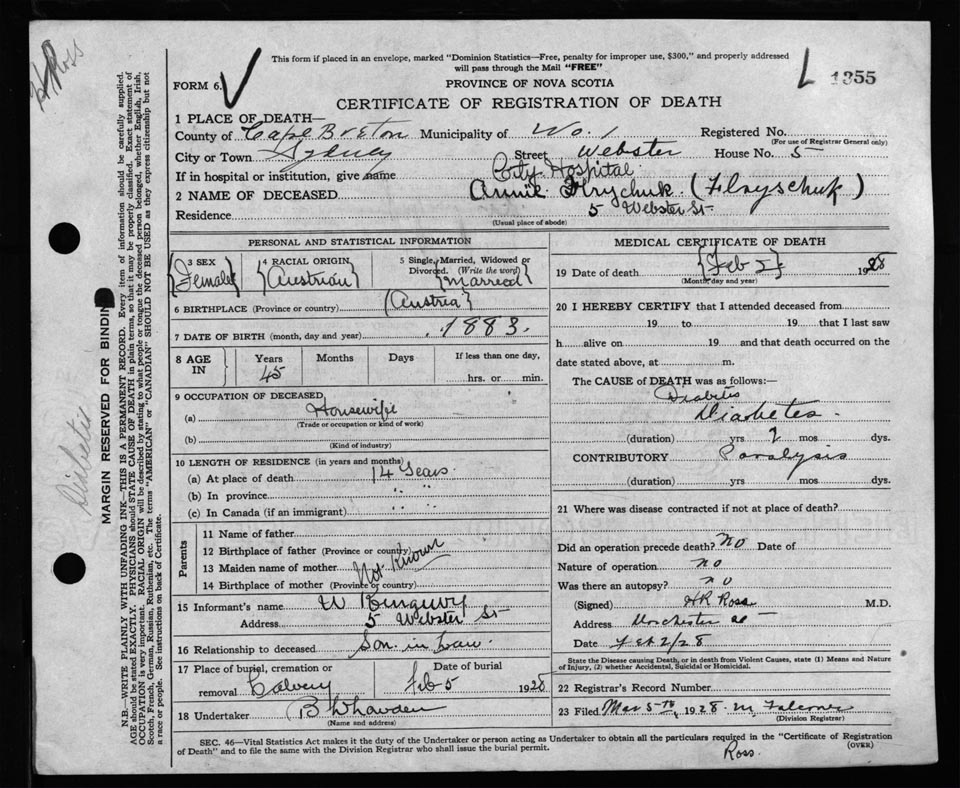 H Ross
This form if placed in an envelope, marked "Dominion Statistics—Free, penalty for improper use, $300," and properly addressed
will pass through the Mail "FREE"
L 1355
FORM 6.
PROVINCE OF NOVA SCOTIA
CERTIFICATE OF REGISTRATION OF DEATH
1 PLACE OF DEATH—
County of Cape Breton Municipality of No. 1 Registered No.
(For use of Registrar General only)
City or Town Sydney Street Webster House No. 5
If in hospital or institution, give name City Hospital
2 NAME OF DECEASED Annie Flrychuk (Flryschuk)
Residence 5 Webster St.
(Usual place of abode)
PERSONAL AND STATISTICAL INFORMATION
3 SEX
Female
4 RACIAL ORIGIN
Austrian
5 Single, Married, Widowed or
Divorced. (Write the word)
Married
6 BIRTHPLACE (Province or country) (Austria)
7 DATE OF BIRTH (month, day and year) 1883.
8 AGE IN
Years
45
Months
Days
If less than one day,
hrs. or min.
9 OCCUPATION OF DECEASED
(a) Housewife
(Trade or occupation or kind of work)
(b)
(Kind of industry)
10 LENGTH OF RESIDENCE (in years and months)
(a) At place of death 14 Years
(b) In province " "
(c) In Canada (if an immigrant) " "
Parents
11 Name of father
12 Birthplace of father (Province or country)
13 Maiden name of mother Not Known
14 Birthplace of mother (Province or country)
15 Informant's name W
Address 5 Webster St
16 Relationship to deceased Son in Law
17 Place of burial, cremation or
removal Calvery
Date of burial
Feb 5 1928
18 Undertaker B Whawden
(Name and address)
MEDICAL CERTIFICATE OF DEATH
19 Date of death Feb 2 1928
(Month, day and year)
20 I HEREBY CERTIFY that I attended deceased from
19 to 19 that I last saw
h alive on 19 and that death occurred on the
date stated above, at m.
The CAUSE of DEATH was as follows:—
Diabetis
Diabetes.
(duration) yrs 2 mos dys.
CONTRIBUTORY Paralysis
(duration) yrs. mos. dys.
21 Where was disease contracted if not at place of death?
Did an operation precede death? no Date of
Nature of operation no
Was there an autopsy? no
(Signed) HR Ross M.D.
Address Dorchester
Date Feb 2/28
State the Disease causing Death, or in death from Violent Causes, state (1) Means and Nature
of Injury, (2) whether Accidental, Suicidal or Homicidal.
22 Registrar's Record Number
23 Filed Mar 5th, 1928 M Falconer
(Division Registrar)
SEC. 46—Vital Statistics Act makes it the duty of the Undertaker or person acting as Undertaker to obtain all the particulars required in the "Certificate of Registration
of Death" and to file the same with the Division Registrar who shall issue the burial permit.
(OVER)
Ross.
Diabetis
MARGIN RESERVED FOR BINDING
N.B.—WRITE PLAINLY WITH UNFADING INK—THIS IS A PERMANENT RECORD. Every item of information should be carefully supplied.
AGE should be stated EXACTLY. PHYSICIANS should STATE CAUSE OF DEATH in plain terms, so that it may be properly classified. Exact statement of
OCCUPATION is very important. RACIAL ORIGIN will be described by stating to what people or tongue the deceased person belonged, whether English, Irish,
Scotch, French, German, Russian, Ruthenian, etc. The terms "AMERICAN" or "CANADIAN" SHOULD NOT BE USED as they express citizenship but not
a race or people. See instructions on back of Certificate.